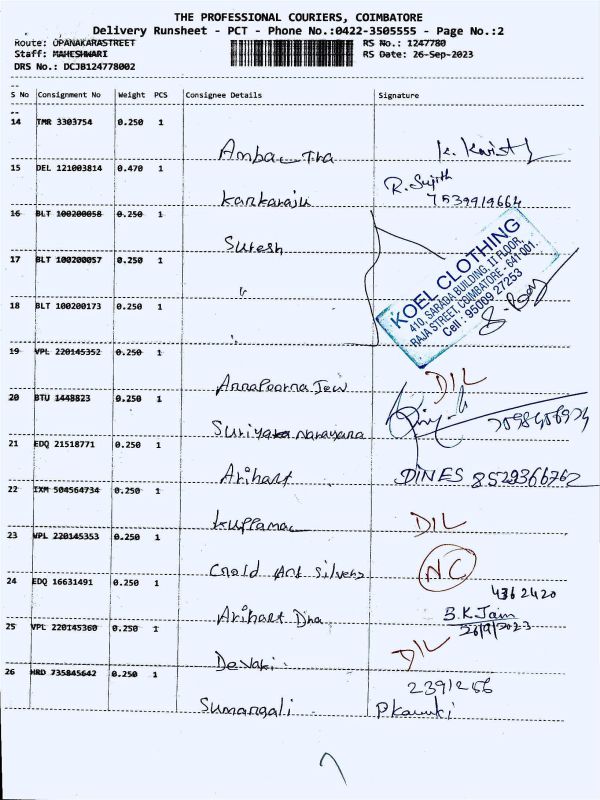 THE PROFESSIONAL COURIERS, COIMBATORE
Delivery Runsheet - PCT - Phone No.:0422-3505555 - Page No.:2
Route: OPANAKARASTREET RS No.: 1247780
Staff: MAHESHWARI RS Date: 26-Sep-2023
DRS No.: DCJB124778002
S No Consignment No Weight PCS Consignee Details Signature
14 TMR 3303754 0.250 1
15 DEL 121003814 0.470 1
R. Sujith
7539919664
Kankaraju
16 BLT 100200058 0.250 1
Suresh
17 BLT 100200057 0.250 1
KOEL CLOTHING
410, SARADA BUILDING, II FLOOR,
RAJA STREET, COIMBATORE - 641 001.
Cell : 95009 27253
18 BLT 100200173 0.250 1
19 VPL 220145352 0.250 1
Annapoorna Jew DIL
20 BTU 1448823 0.250 1
Suriya Narayana
21 EDQ 21518771 0.250 1
Arihant DINES 8529366762
22 IXM 504564734 0.250 1
DIL
23 VPL 220145353 0.250 1
Gold Art Silvers NC
24 EDQ 16631491 0.250 1
4362420
Arihant Dha B.K.Jain
26/9/2023
25 VPL 220145360 0.250 1
Devaki DIL
26 HRD 735845642 0.250 1
2391256
Sumangali